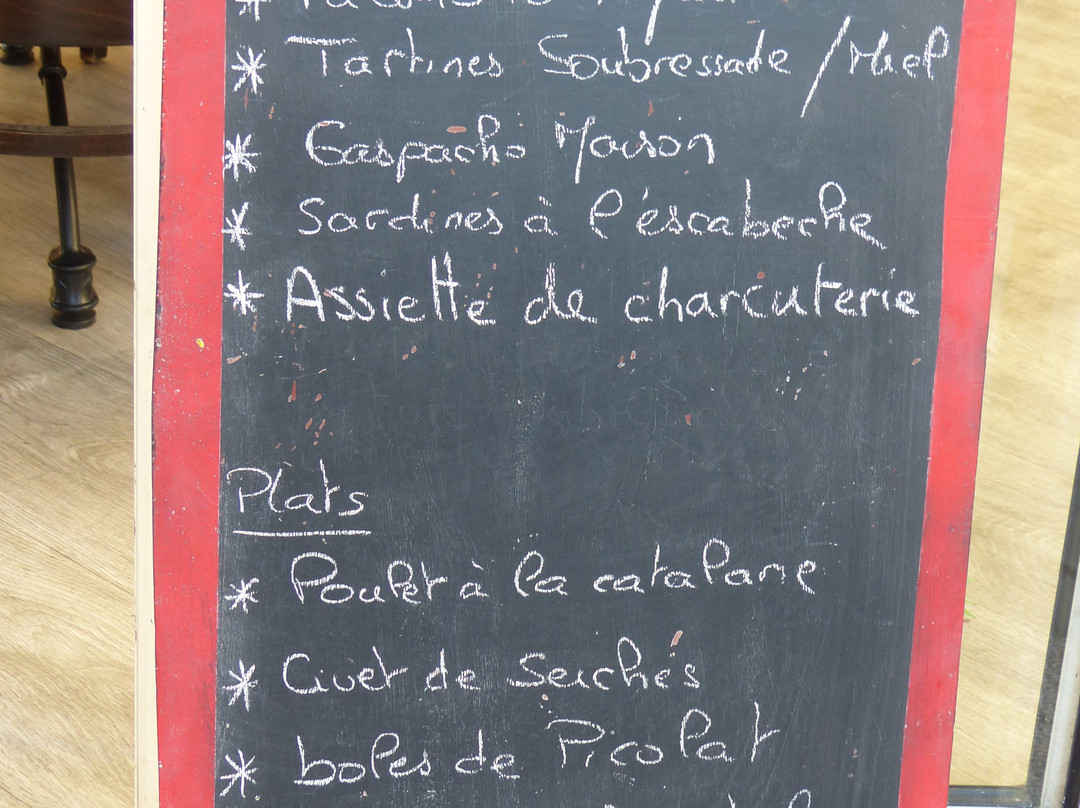 * Tartines Soubressade / Miel
* Gaspacho Maison
* Sardines à l'éscabeche
* Assiette de charcuterie
Plats
* Poulet à la catalane
* Civet de Seichés
* boles de Picolat